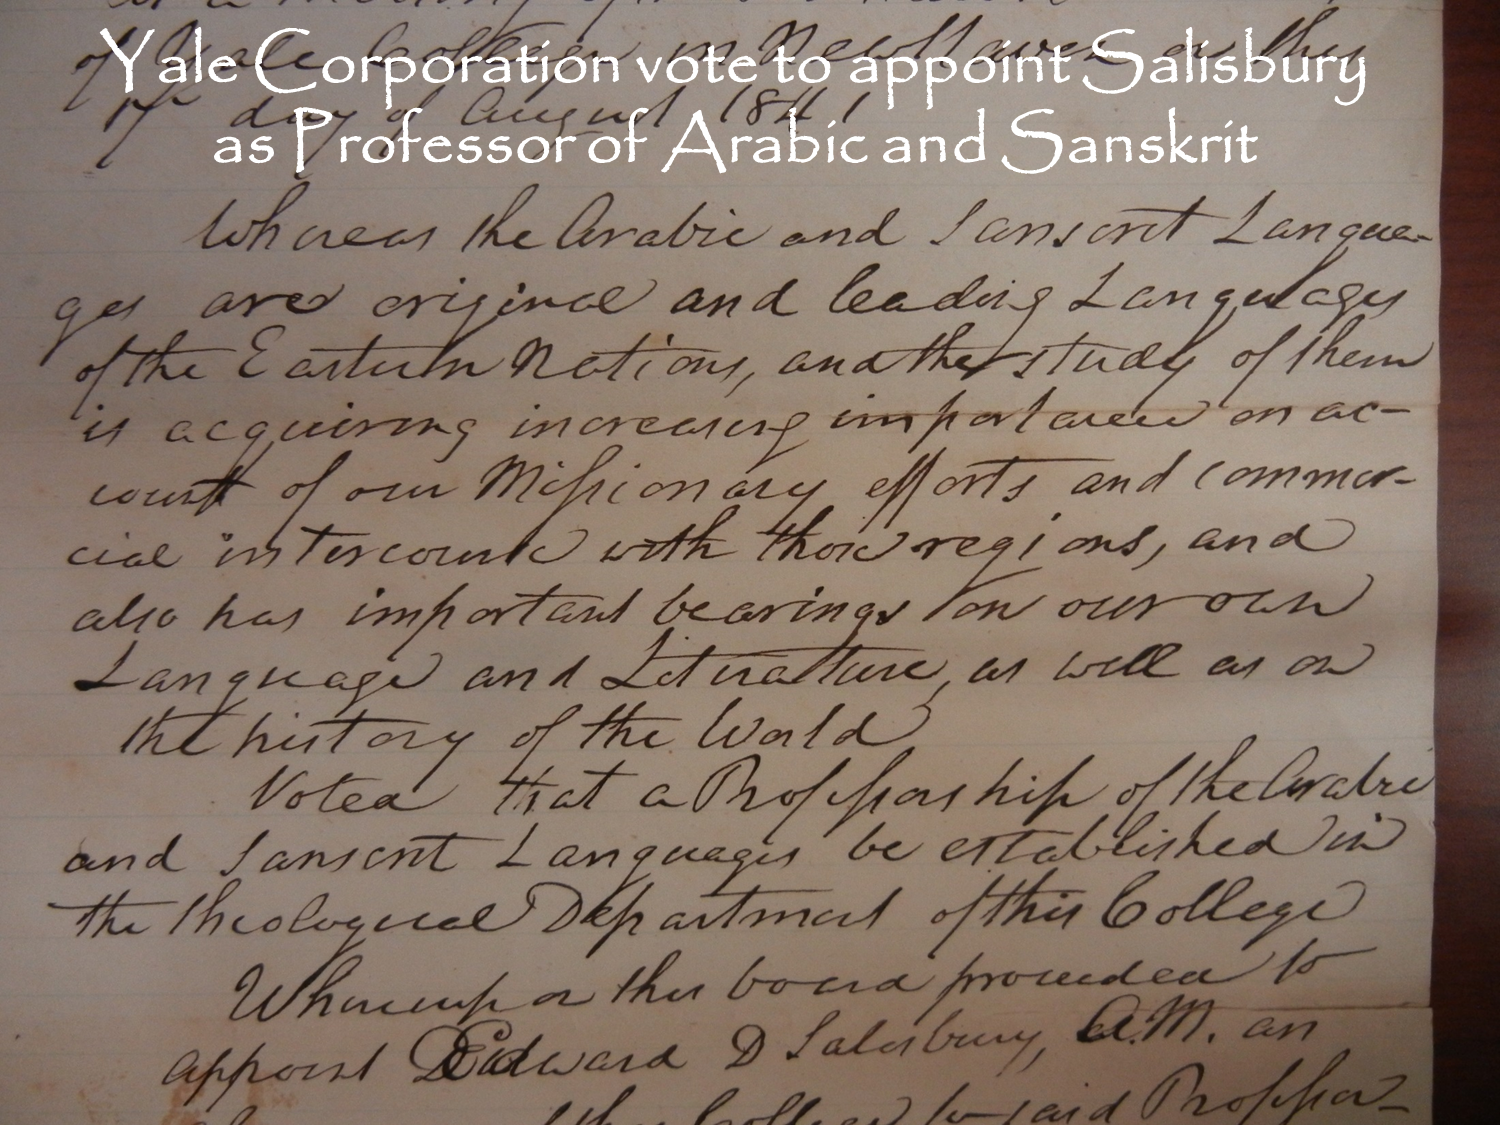 Yale Corporation vote to appoint Salisbury
as Professor of Arabic and Sanskrit
of Yale College in New Haven on the
17th day of August 1841
Whereas the Arabic and Sanscrit Langua-
ges are original and leading Languages
of the Eastern Nations, and the study of them
is acquiring increasing importance on ac-
count of our Missionary efforts and commer-
cial intercourse with those regions, and
also has important bearings on our own
Language and Literature, as well as on
the history of the World
Voted that a Professorship of the Arabic
and Sanscrit Languages be established in
the Theological Department of this College
Whereupon this board proceeded to
appoint Edward D Salisbury, A.M. an
College to said Professor-